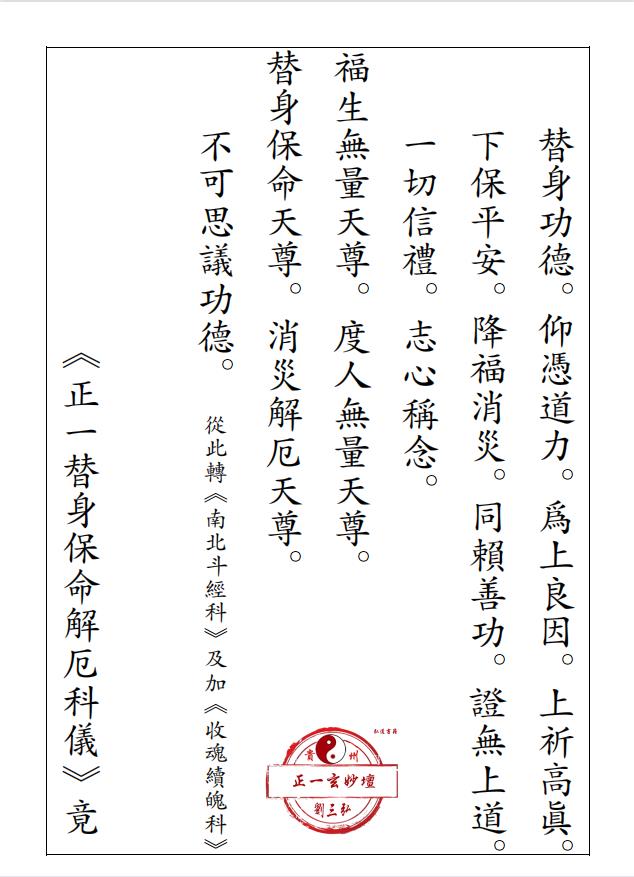 替身功德。仰憑道力。爲上良因。上祈高眞。
下保平安。降福消災。同賴善功。證無上道。
一切信禮。志心稱念。
福生無量天尊。度人無量天尊。
替身保命天尊。消災解厄天尊。
不可思議功德。
從此轉《南北斗經科》及加《收魂續魄科》
《正一替身保命解厄科儀》竟
弘道書籍
貴州
正一玄妙壇
劉三弘